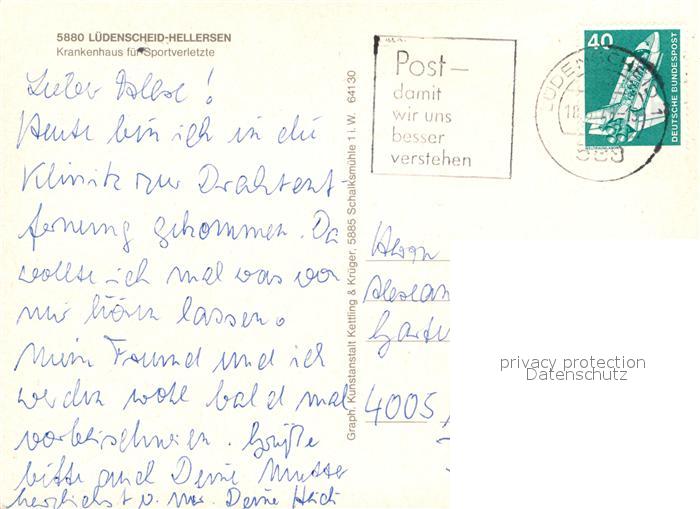 5880 LÜDENSCHEID-HELLERSEN
Krankenhaus für Sportverletzte
Lieber Alex!
Heute bin ich in die
Klinik zur Drahtent-
fernung gekommen. Da
wollte ich mal was von
mir hören lassen.
Mein Freund und ich
werden wohl bald mal
vorbeischneien. Grüße
bitte auch Deine Mutter
herzlichst v. mir. Deine Heidi
Graph. Kunstanstalt Kettling & Krüger, 5885 Schalksmühle 1 i. W. 64130
Post-
damit
wir uns
besser
verstehen
LÜDENSCHE
1
18
588
40
DEUTSCHE BUNDESPOST
Herrn
Alexan
Gartu
4005
privacy protection
Datenschutz